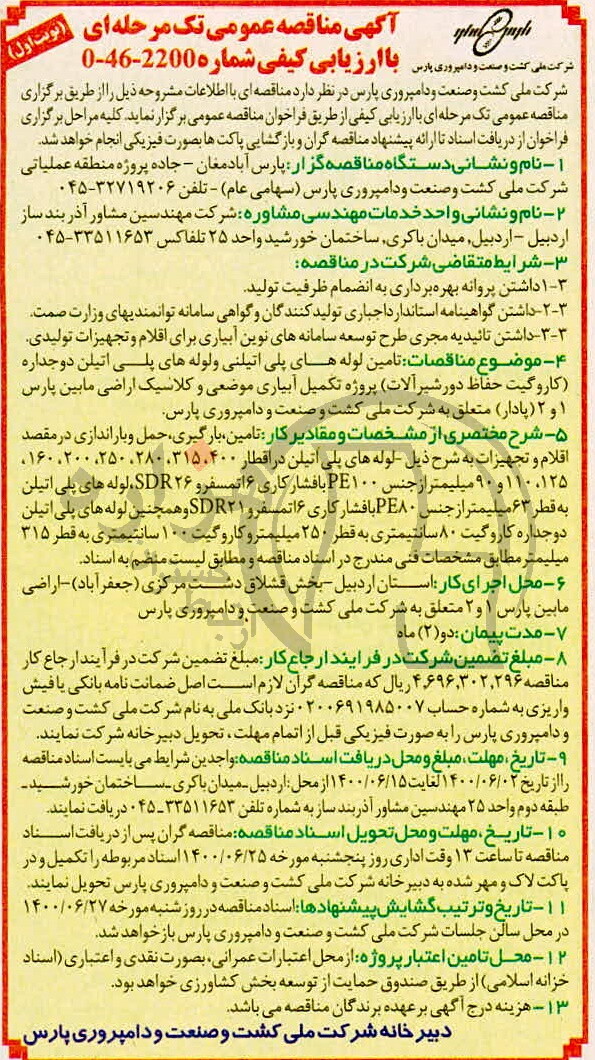 آگهی مناقصه عمومی تک مرحله‌ای
با ارزیابی کیفی شماره 2200-46-0
(نوبت اول)
شرکت ملی کشت و صنعت و دامپروری پارس
شرکت ملی کشت وصنعت ودامپروری پارس در نظر دارد مناقصه ای با اطلاعات مشروحه ذیل را از طریق برگزاری
مناقصه عمومی تک مرحله ای با ارزیابی کیفی از طریق فراخوان مناقصه عمومی برگزار نماید. کلیه مراحل برگزاری
فراخوان از دریافت اسناد تا ارائه پیشنهاد مناقصه گران و بازگشایی پاکت ها بصورت فیزیکی انجام خواهد شد.
۱-نام و نشانی دستگاه مناقصه گزار: پارس آباد مغان – جاده پروژه منطقه عملیاتی
شرکت ملی کشت وصنعت ودامپروری پارس (سهامی عام) - تلفن ۳۲۷۱۹۲۰۶-۰۴۵
۲-نام و نشانی واحد خدمات مهندسی مشاوره: شرکت مهندسین مشاور آذر بند ساز
اردبیل – اردبیل، میدان باکری، ساختمان خورشید واحد ۲۵ تلفاکس ۳۳۵۱۱۶۵۳-۰۴۵
۳-شرایط متقاضی شرکت در مناقصه:
۳-۱داشتن پروانه بهره برداری به انضمام ظرفیت تولید.
۳-۲-داشتن گواهینامه استاندارد اجباری تولید کنندگان و گواهی سامانه توانمندیهای وزارت صمت.
۳-۳-داشتن تائیدیه مجری طرح توسعه سامانه های نوین آبیاری برای اقلام و تجهیزات تولیدی.
۴-موضوع مناقصات: تامین لوله هـای پلی اتیلنی ولوله های پلـی اتیلن دوجداره
(کاروگیت حفاظ دور شیرآلات) پروژه تکمیل آبیاری موضعی و کلاسیک اراضی مابین پارس
۱ و ۲ (پادار) متعلق به شرکت ملی کشت و صنعت و دامپروری پارس.
۵-شرح مختصری از مشخصات و مقادیر کار: تامین، بارگیری، حمل وبار اندازی در مقصد
اقلام و تجهیزات به شرح ذیل -لوله های پلی اتیلن در اقطار ۴۰۰، ۳۱۵، ۲۸۰، ۲۵۰، ۲۰۰، ۱۶۰،
۱۲۵، ۱۱۰ و ۹۰ میلیمتر از جنس PE۱۰۰ با فشار کاری ۶ اتمسفر و SDR۲۶، لوله های پلی اتیلن
به قطر ۶۳ میلیمتر از جنس PE۸۰ با فشار کاری ۶ اتمسفر و SDR۲۱ وهمچنین لوله های پلی اتیلن
دوجداره کاروگیت ۸۰ سانتیمتری به قطر ۲۵۰ میلیمتر و کاروگیت ۱۰۰ سانتیمتری به قطر ۳۱۵
میلیمتر مطابق مشخصات فنی مندرج در اسناد مناقصه و مطابق لیست منضم به اسناد.
۶-محل اجرای کار: اسـتان اردبیل -بخش قشلاق دشـت مرکزی (جعفر آباد)-اراضی
مابین پارس ۱ و ۲ متعلق به شرکت ملی کشت و صنعت و دامپروری پارس
۷-مدت پیمان: دو (۲) ماه
۸-مبلغ تضمین شرکت در فرایند ارجاع کار: مبلغ تضمین شرکت در فرآیند ارجاع کار
مناقصه ۴,۶۹۶,۳۰۲,۲۹۶ ریال که مناقصه گران لازم اسـت اصل ضمانت نامه بانکی یا فیش
واریزی به شماره حساب ۰۲۰۰۶۹۱۹۸۵۰۰۷ نزد بانک ملی به نام شرکت ملی کشت و صنعت
و دامپروری پارس را به صورت فیزیکی قبل از اتمام مهلت ، تحویل دبیرخانه شرکت نمایند.
۹- تاریخ، مهلت، مبلغ و محل دریافت اسناد مناقصه: واجدین شرایط می بایست اسناد مناقصه
را از تاریخ ۱۴۰۰/۰۶/۰۲ لغایت ۱۴۰۰/۰۶/۱۵ از محل: اردبیل ـ میدان باکری ـ سـاختمان خورشـید ـ
طبقه دوم واحد ۲۵ مهندسین مشاور آذر بند ساز به شماره تلفن ۳۳۵۱۱۶۵۳ـ۰۴۵ دریافت نمایند.
۱۰-تاریـخ، مهلت و محل تحویل اسـناد مناقصه: مناقصه گران پس از دریافت اسـناد
مناقصه تا ساعت ۱۳ وقت اداری روز پنجشنبه مورخه ۱۴۰۰/۰۶/۲۵ اسناد مربوطه را تکمیل و در
پاکت لاک و مهر شده به دبیرخانه شرکت ملی کشت و صنعت و دامپروری پارس تحویل نمایند.
۱۱-تاریخ و ترتیب گشایش پیشنهادها: اسناد مناقصه در روز شنبه مورخه ۱۴۰۰/۰۶/۲۷
در محل سالن جلسات شرکت ملی کشت و صنعت و دامپروری پارس باز خواهد شد.
۱۲-محـل تامین اعتبار پروژه: از محل اعتبارات عمرانی، بصورت نقدی و اعتباری (اسناد
خزانه اسلامی) از طریق صندوق حمایت از توسعه بخش کشاورزی خواهد بود.
۱۳-هزینه درج آگهی بر عهده برندگان مناقصه می باشد.
دبیر خانه شرکت ملی کشت و صنعت و دامپروری پارس